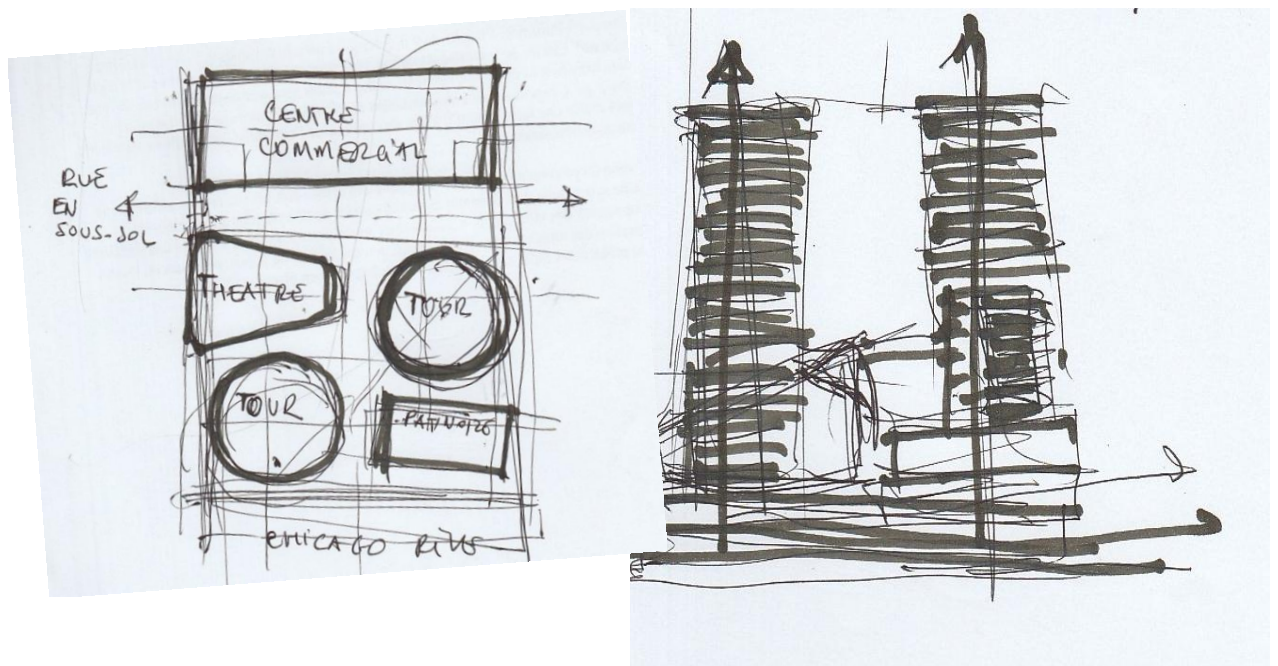 CENTRE
COMMERCIAL
RUE
EN
SOUS-SOL
THEATRE
TOUR
TOUR
PATINOIRE
CHICAGO RIVE